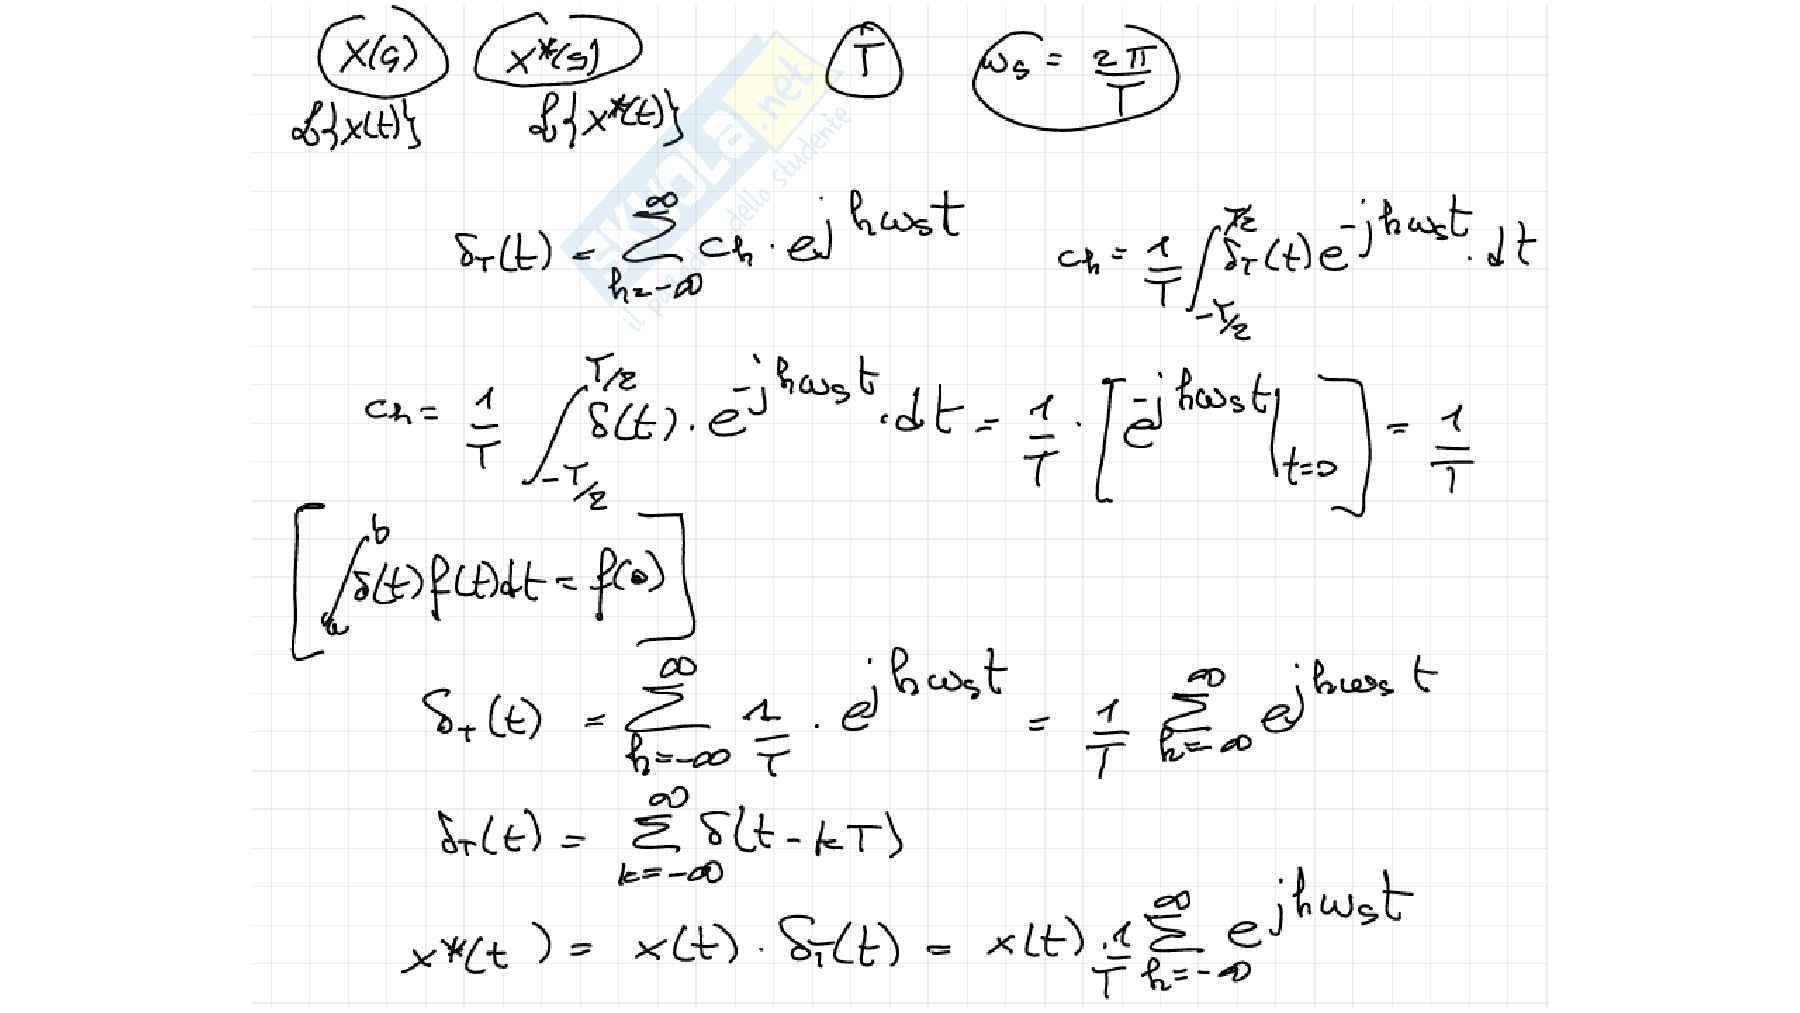 X(s) X*(s) T ωs = 2π/T
ℒ{x(t)} ℒ{x*(t)}
SKUOLA.net
il paradiso dello studente
δT(t) = ∑_{h=-∞}^{∞} ch · e^{jhωst} ch = 1/T ∫_{-T/2}^{T/2} δT(t) e^{-jhωst} · dt
ch = 1/T ∫_{-T/2}^{T/2} δ(t) · e^{-jhωst} · dt = 1/T · [e^{-jhωst}|_{t=0}] = 1/T
[∫_a^b δ(t) f(t) dt = f(0)]
δT(t) = ∑_{h=-∞}^{∞} 1/T · e^{jhωst} = 1/T ∑_{h=-∞}^{∞} e^{jhωst}
δT(t) = ∑_{k=-∞}^{∞} δ(t-kT)
x*(t) = x(t) · δT(t) = x(t) · 1/T ∑_{h=-∞}^{∞} e^{jhωst}